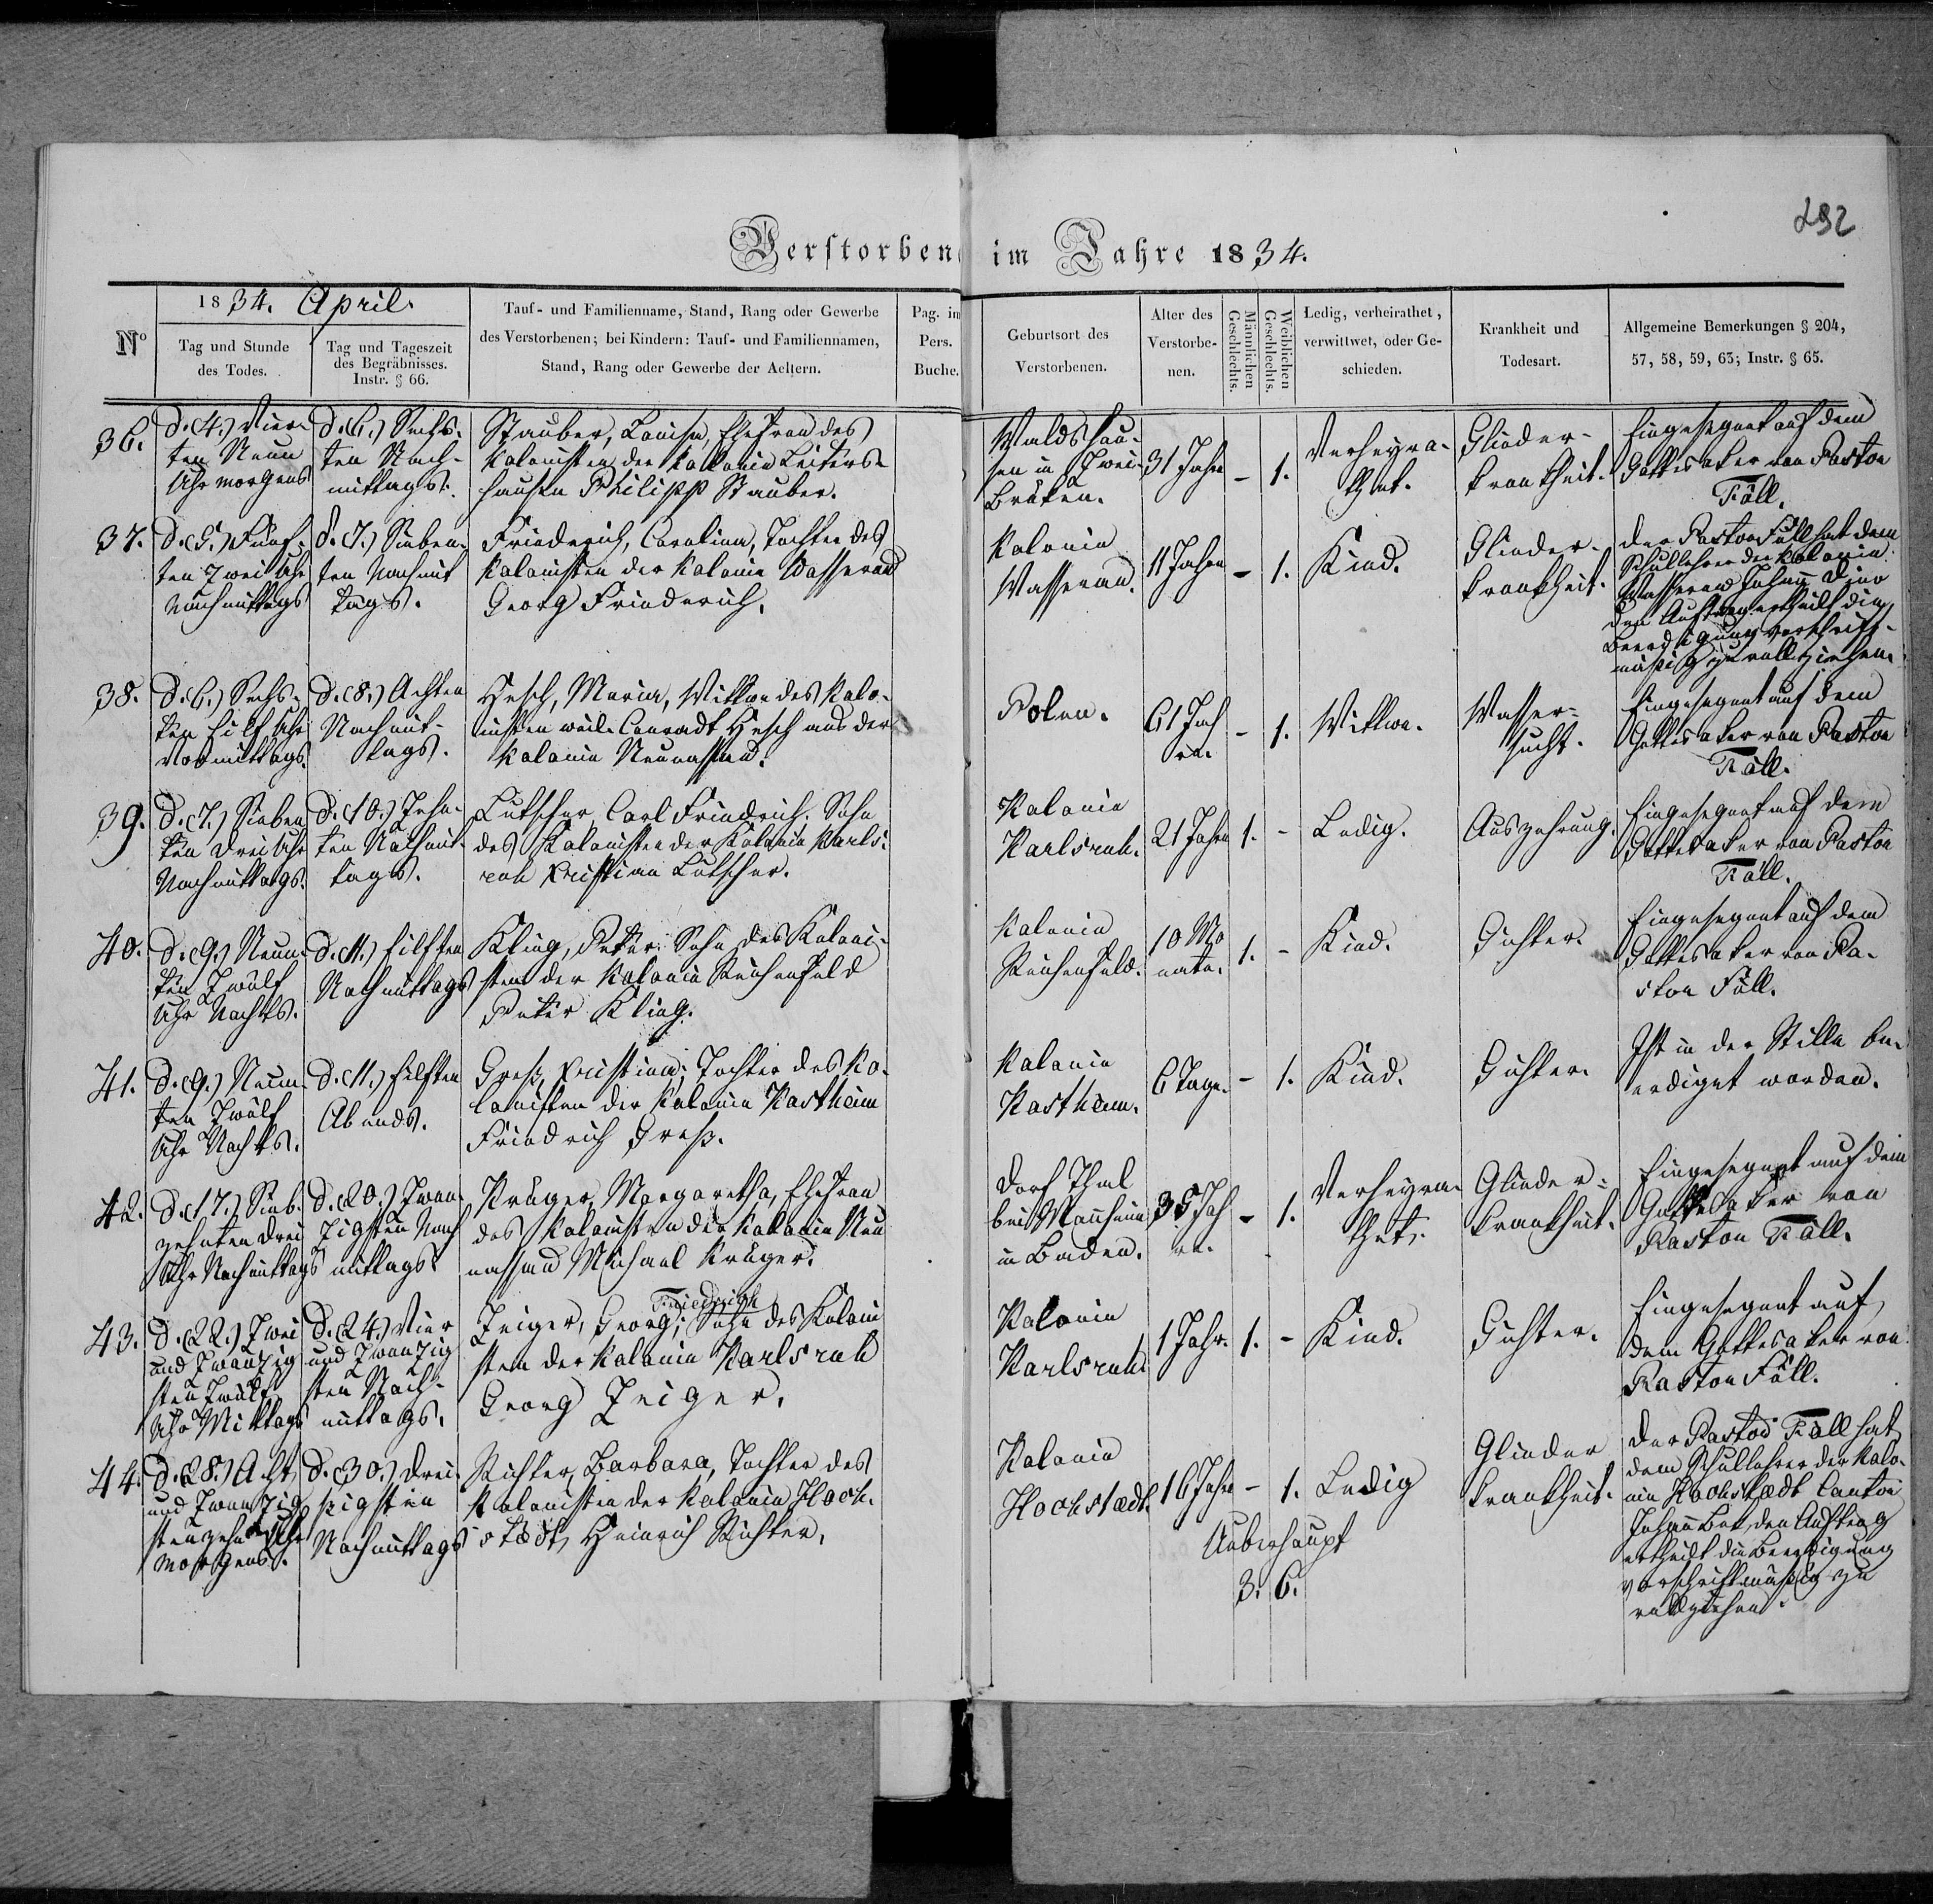 292
Verstorbene im Jahre 1834.
Nº
1834. April.
Tag und Stunde
des Todes.
Tag und Tageszeit
des Begräbnisses.
Instr. § 66.
Tauf- und Familienname, Stand, Rang oder Gewerbe
des Verstorbenen; bei Kindern: Tauf- und Familiennamen,
Stand, Rang oder Gewerbe der Aeltern.
Pag. im
Pers.
Buche.
Geburtsort des
Verstorbenen.
Alter des
Verstorbe-
nen.
Männlichen
Geschlechts.
Weiblichen
Geschlechts.
Ledig, verheirathet,
verwittwet, oder Ge-
schieden.
Krankheit und
Todesart.
Allgemeine Bemerkungen § 204,
57, 58, 59, 63; Instr. § 65.
36.
d. (4.) Vier-
ten Neun
Uhr morgens
d. (6.) Sechs-
ten Nach-
mittags.
Stauber, Louisa, Ehefrau des
Kolonisten der Kolonie Leiters-
hausen Philipp Stauber.
Waldshau-
sen in Zwei-
brüken.
31 Jahre
- 1.
Verheyra-
thet.
Glieder-
krankheit.
Eingesegnet auf dem
Gottesaker von Pastor
Föll.
37.
d. (5.) Fünf-
ten Zwei Uhr
Nachmittags
d. (7.) Sieben-
ten Nachmit
tags.
Friederich, Carolina, Tochter des
Kolonisten der Kolonie Wasserau
Georg Friederich.
Kolonie
Wasserau.
11 Jahre
- 1.
Kind.
Glieder-
krankheit.
Der Pastor Föll hat dem
Schullehrer der Kolonie
Wasserau Johann
den Auftrag ertheilt die
Beerdigung vorschrift-
mäßig zu vollziehen.
38.
d. (6.) Sechs-
ten Eilf Uhr
Vormittags.
d. (8.) Achten
Nachmit-
tags.
Hesch, Maria, Wittwe des Kolo-
nisten weil. Conradt Hesch aus der
Kolonie Neunassau.
Polen.
61 Jah
re.
- 1.
Wittwe.
Wasser-
sucht.
Eingesegnet auf dem
Gottesaker von Pastor
Föll.
39.
d. (7.) Sieben
ten Drei Uhr
Nachmittags.
d. (10.) Zehn-
ten Nachmit-
tags.
Lutscher, Carl Friedrich. Sohn
des Kolonisten der Kolonie Karls-
ruh Kristian Lutscher.
Kolonie
Karlsruh.
21 Jahre
1. -
Ledig.
Auszehrung.
Eingesegnet auf dem
Gottesaker von Pastor
Föll.
40.
d. (9.) Neun-
ten Zwölf
Uhr Nachts.
d. (11.) Eilften
Nachmittags
Kling, Peter. Sohn des Koloni-
sten der Kolonie Reichenfeld
Peter Kling.
Kolonie
Reichenfeld.
10 Mo
nate.
1. -
Kind.
Gichter.
Eingesegnet auf dem
Gottesaker von Pa-
stor Föll.
41.
d. (9.) Neun-
ten Zwölf
Uhr Nachts.
d. (11.) Eilften
Abends.
Groß, Kristina; Tochter des Ko-
lonisten der Kolonie Kostheim
Friedrich Groß.
Kolonie
Kostheim.
6 Tage.
- 1.
Kind.
Gichter.
Ist in der Stille be-
erdiget worden.
42.
d. (17.) Sieb-
zehnten Drei
Uhr Nachmittags
d. (20.) Zwan-
zigsten Nach
mittags.
Krüger, Margaretha, Ehefrau
des Kolonisten der Kolonie Neu
nassau Michael Krüger.
Dorf Thal
bei Mannheim
in Baden.
35 Jah
re.
- 1.
Verheyra-
thet.
Glieder-
krankheit.
Eingesegnet auf dem
Gottesaker von
Pastor Föll.
43.
d. (22.) Zwei
und Zwanzig
sten Zwölf
Uhr Mittags
d. (24.) Vier
und Zwanzig
sten Nach-
mittags.
Friedrich
Zeiger, Georg; Sohn des Koloni
sten der Kolonie Karlsruh
Georg Zeiger.
Kolonie
Karlsruh.
1 Jahr.
1. -
Kind.
Gichter.
Eingesegnet auf
dem Gottesaker von
Pastor Föll.
44.
d. (28.) Acht
und Zwanzig
sten zehn Uhr
morgens.
d. (30.) Drei-
ßigsten
Nachmittags
Richter, Barbara, Tochter des
Kolonisten der Kolonie Hoch-
stædt, Heinrich Richter.
Kolonie
Hochstædt.
16 Jahre
- 1.
Ledig
Glieder
krankheit.
Der Pastor Föll hat
dem Schullehrer der Kolo-
nie Hochstædt Cantor
Johann den Auftrag
ertheilt die Beerdigung
vorschriftmäßig zu
vollziehen.
Ueberhaupt
3. 6.